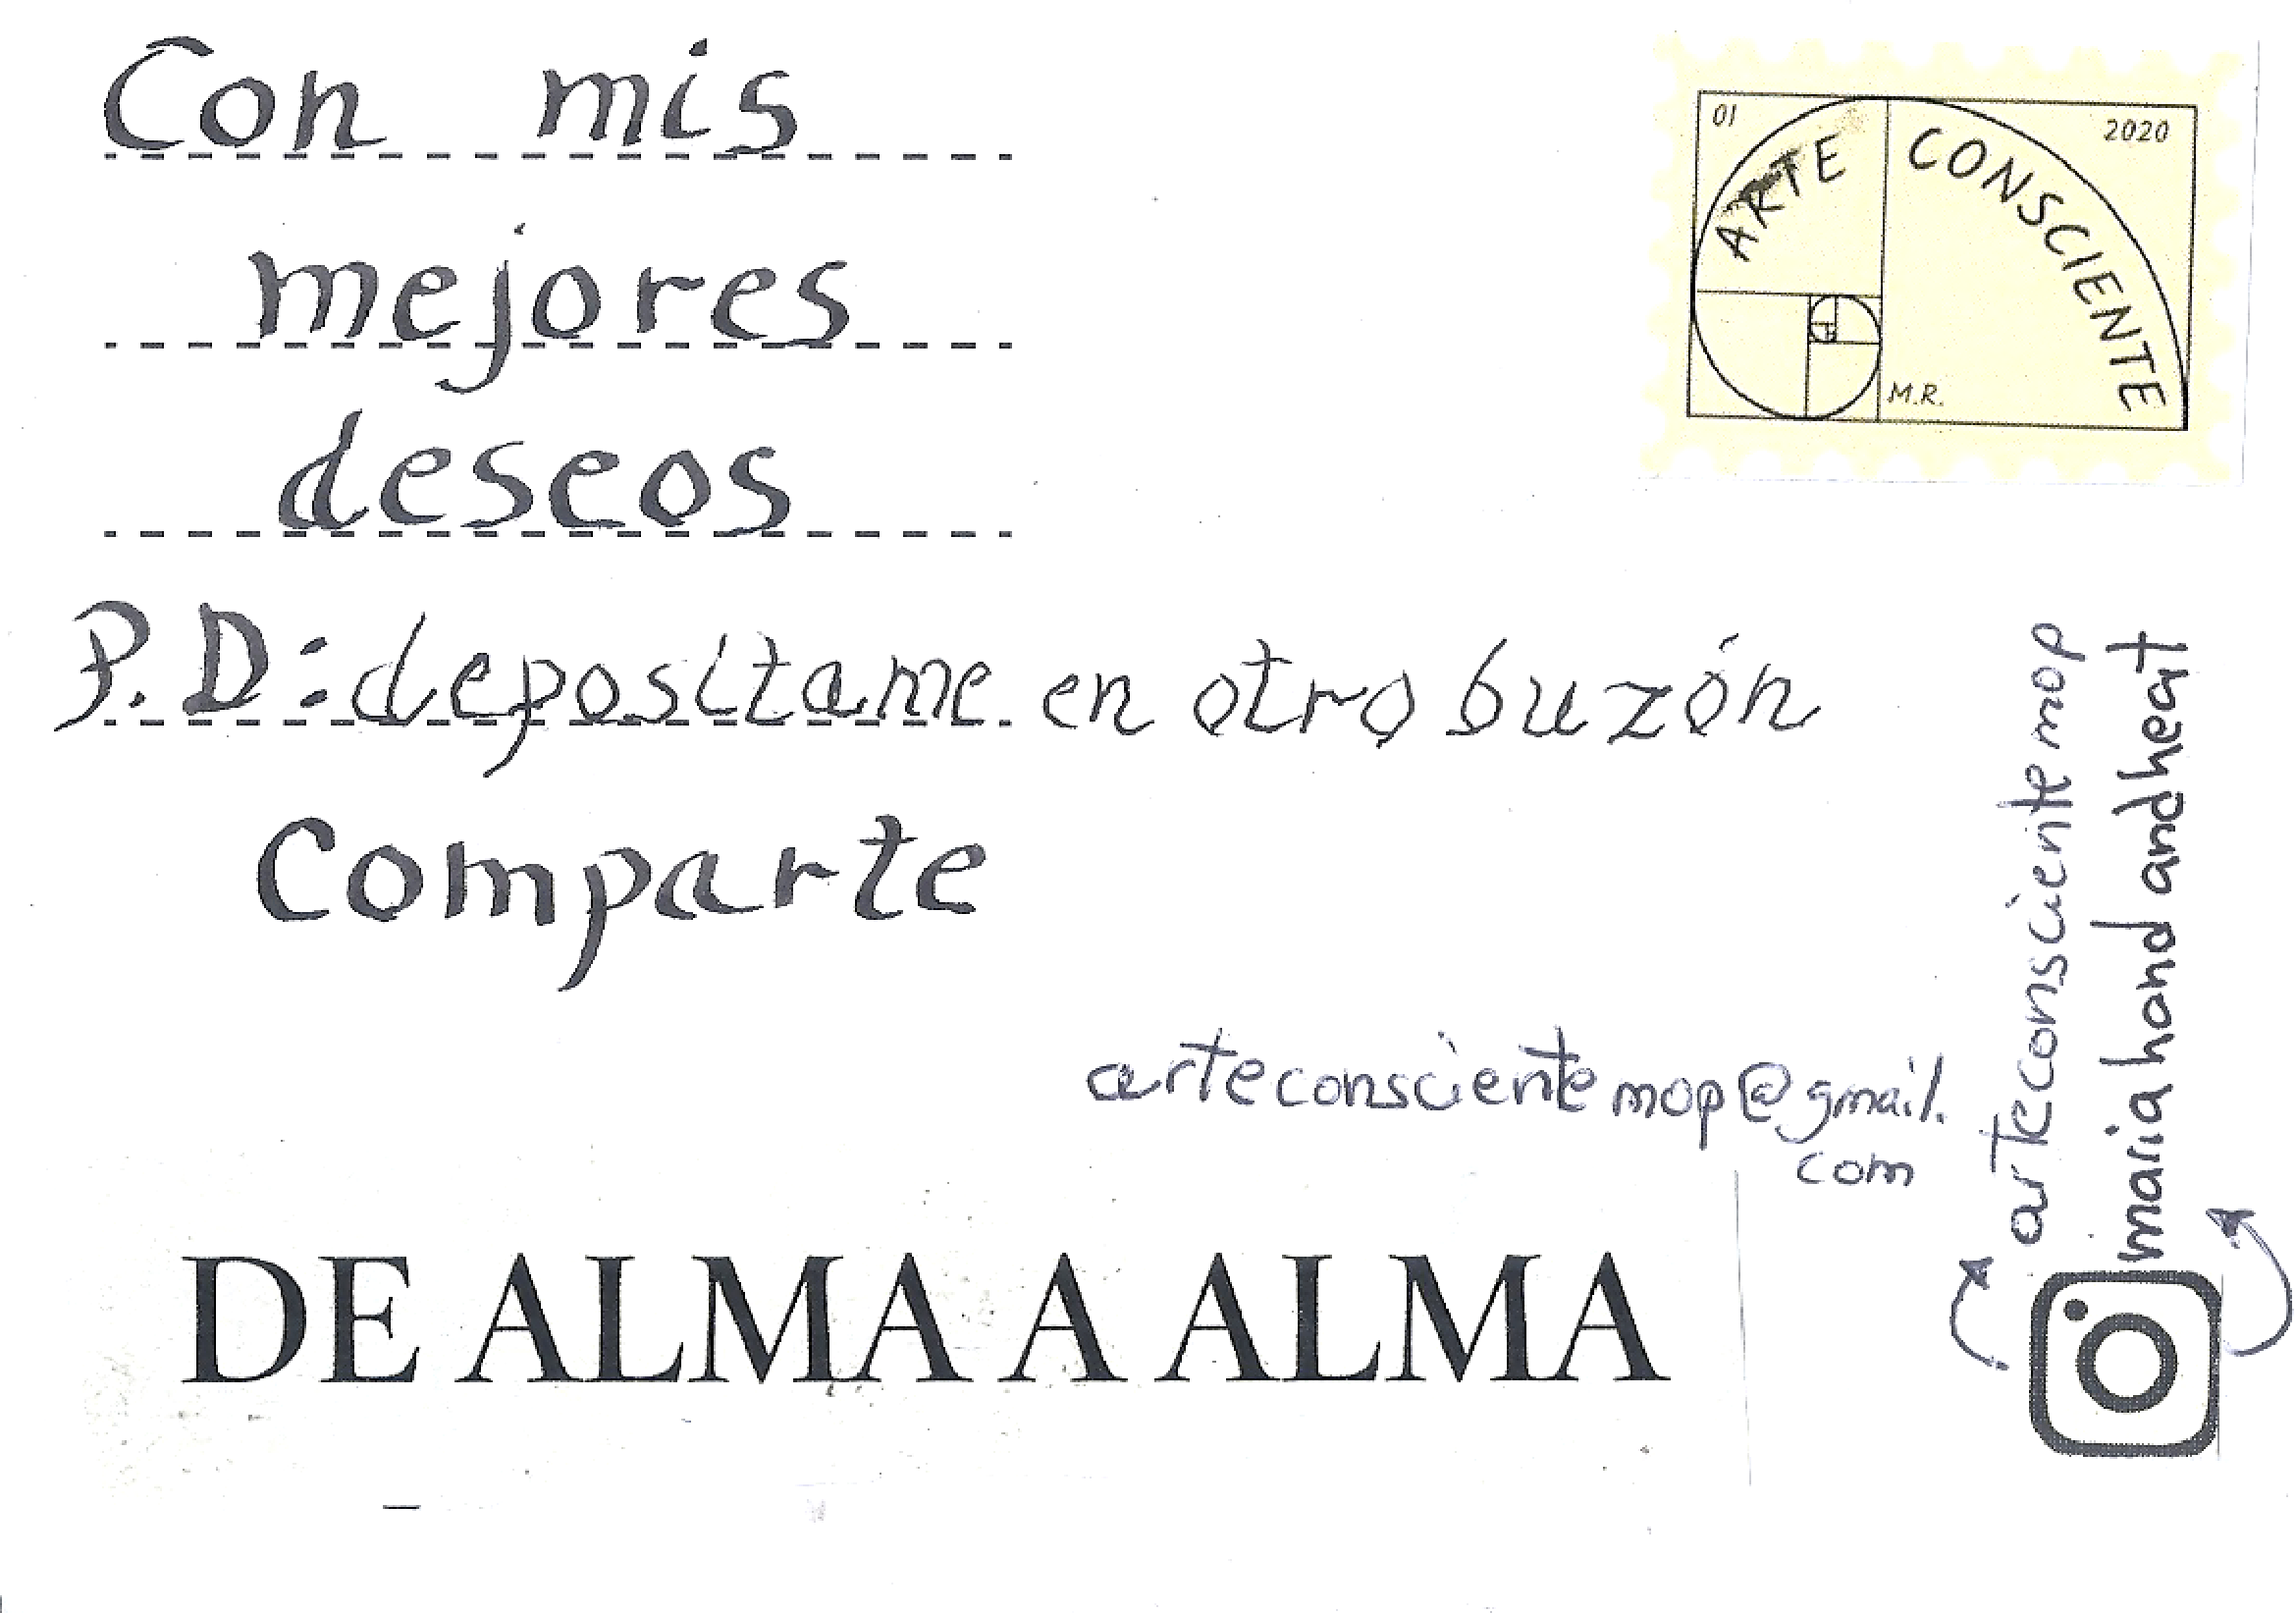 Con mis
mejores
deseos
P.D: depositame en otro buzón
Comparte
01
2020
ARTE CONSCIENTE
M.R.
arteconscientemop@gmail.
com
DE ALMA A ALMA
arteconscientemop
maria hand andheat